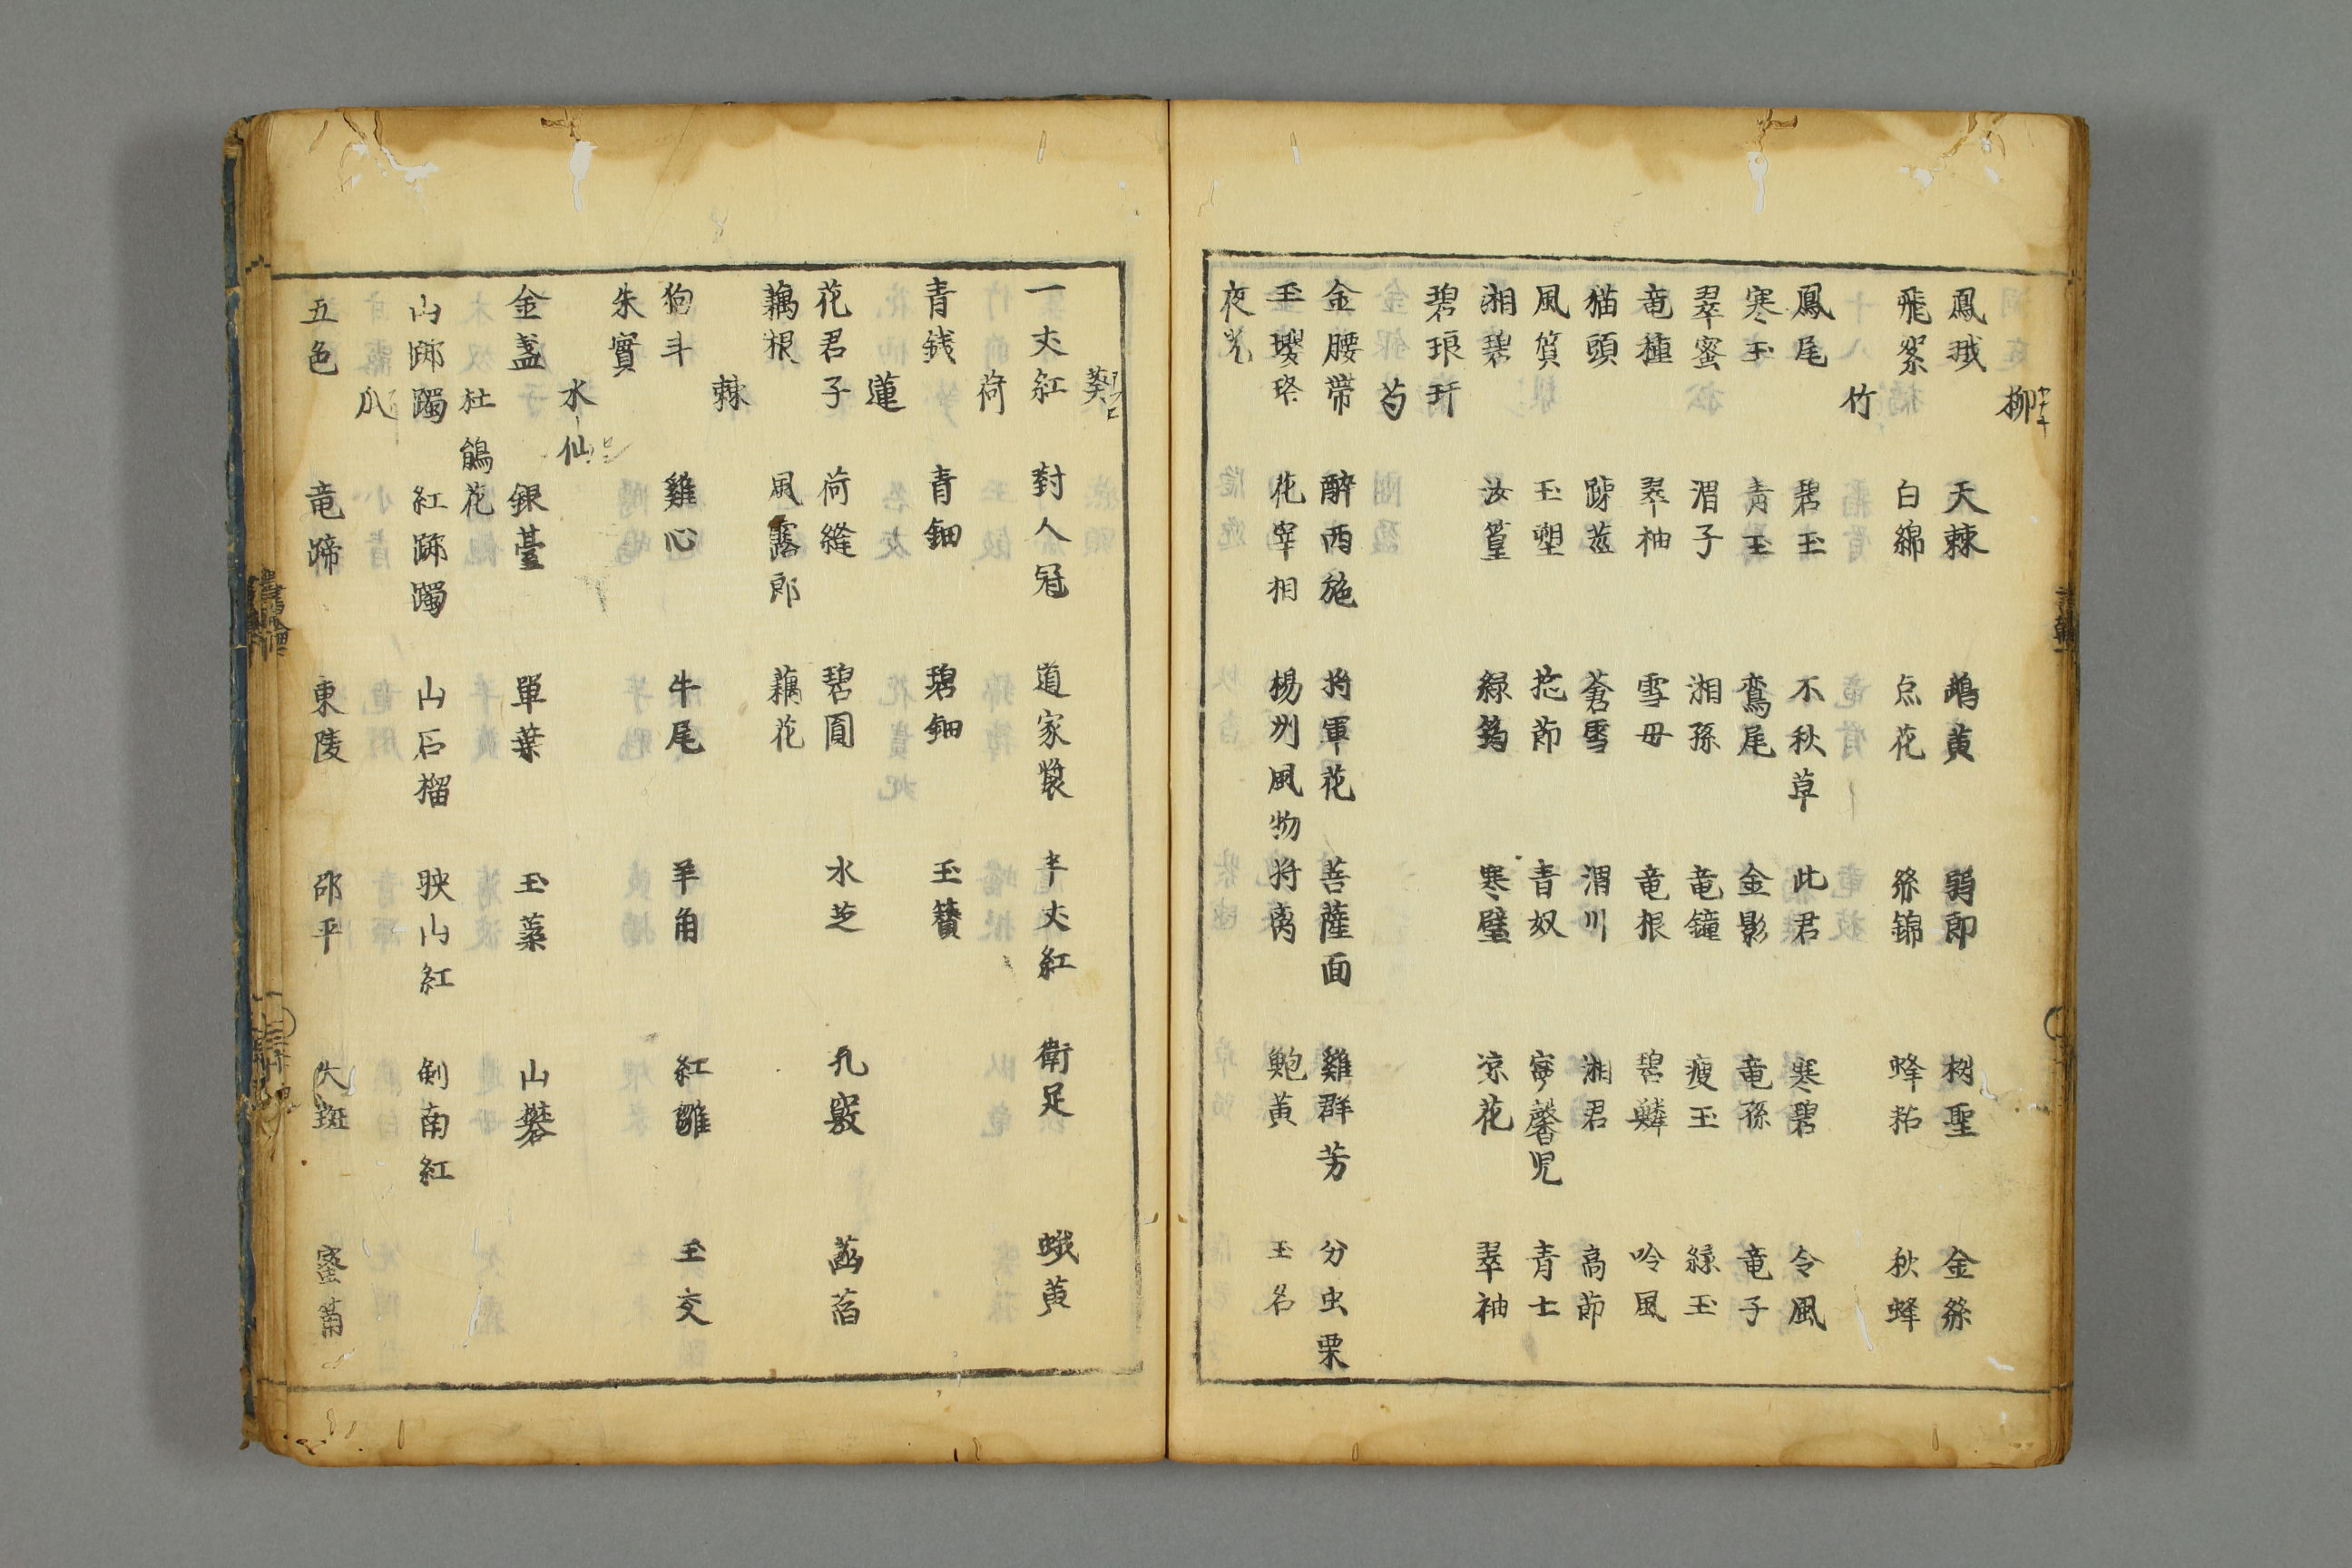 柳
鳳城 天棘 鵡黄 鴉郎 栁聖 金絲
飛絮 白綿 点花 絲錦 蜂粘 秋蜂
竹
鳳尾 碧玉 不秋草 此君 寒碧 令風
寒玉 青玉 鸞尾 金影 竜孫 竜子
翠蜜 渭子 湘孫 竜鐘 瘦玉 緑玉
竜種 翠袖 雪母 竜根 碧鱗 吟風
猫頭 蒼雪 渭川 湘君 高節
風質 玉塑 抱節 青奴 寧馨児 青士
湘碧 汝篁 緑筠 寒璧 凉花 翠袖
碧琅玕
芍
金腰帯 醉西施 将軍花 菩薩面 雞群芳 分虫栗
玉瓔珞 花宰相 楊州風物 将离 鮑黄 玉名
夜光
葵
一丈紅 對人冠 道家裝 半丈紅 衛足 蛾黄
荷
青銭 青鈿 碧鈿 玉簪
蓮
花君子 荷縫 碧圓 水芝 孔竅 菡萏
藕根 風露郎 藕花
棘
狗斗 雞心 牛尾 羊角 紅雛 玉交
朱實
水仙
金盞 銀臺 單葉 玉蘂 山礬
杜鵑花
山躑躅 紅躑躅 山石榴 映山紅 剣南紅
瓜
五色 竜蹄 東陵 邵平 大斑 蜜筩